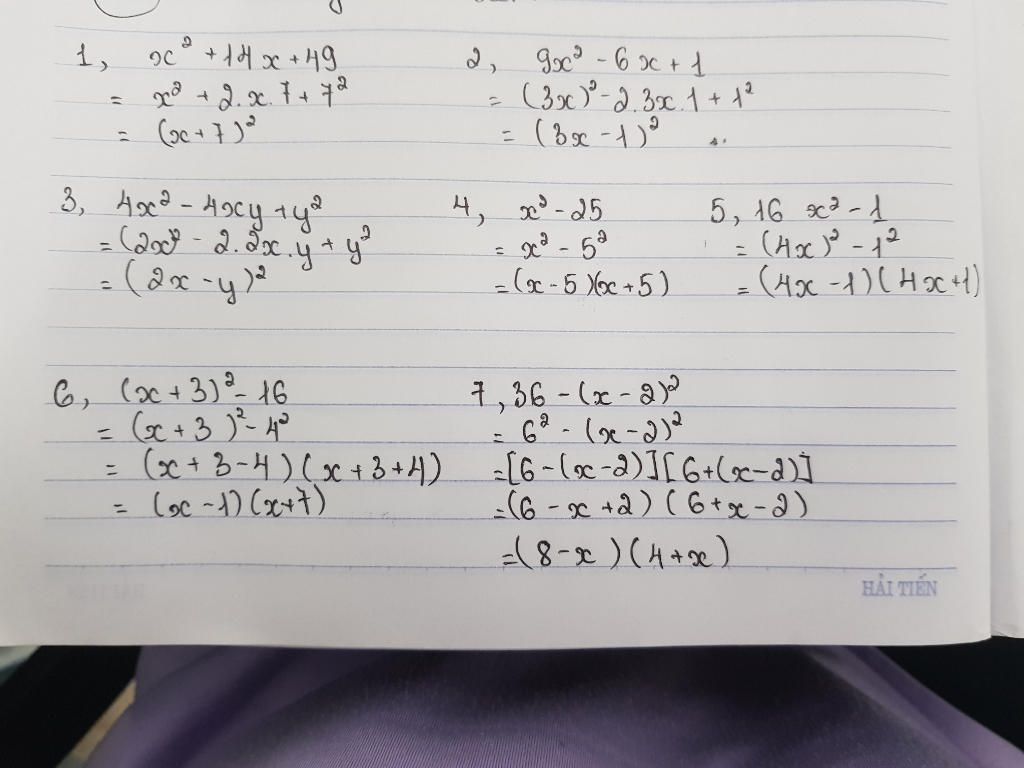 1, x² + 14x + 49
= x² + 2.x.7 + 7²
= (x+7)²
2, 9x² - 6x + 1
= (3x)² - 2.3x.1 + 1²
= (3x - 1)²
3, 4x² - 4xy + y²
= (2x)² - 2.2x.y + y²
= (2x - y)²
4, x² - 25
= x² - 5²
= (x - 5)(x + 5)
5, 16x² - 1
= (4x)² - 1²
= (4x - 1)(4x + 1)
6, (x + 3)² - 16
= (x + 3)² - 4²
= (x + 3 - 4)(x + 3 + 4)
= (x - 1)(x + 7)
7, 36 - (x - 2)²
= 6² - (x - 2)²
= [6 - (x - 2)][6 + (x - 2)]
= (6 - x + 2)(6 + x - 2)
= (8 - x)(4 + x)
HẢI TIẾN